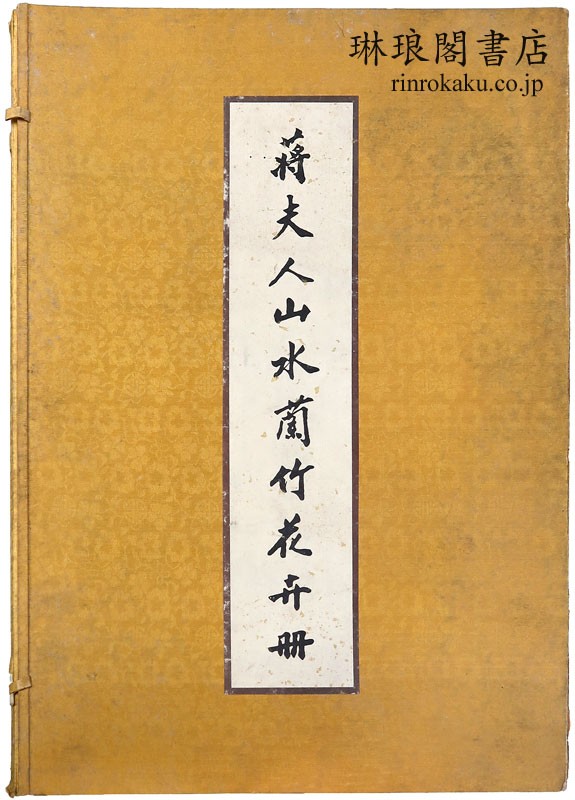 琳琅閣書店
rinrokaku.co.jp
蔣夫人山水蘭竹花卉册